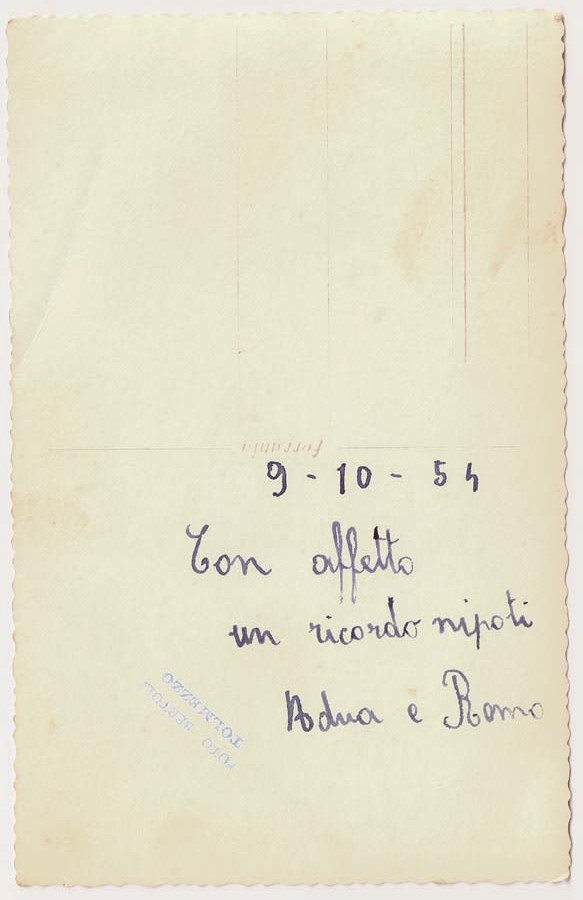 ferrania
9 - 10 - 54
Con affetto
un ricordo nipoti
Adua e Remo
FOTO BERTOL
TOLMEZZO